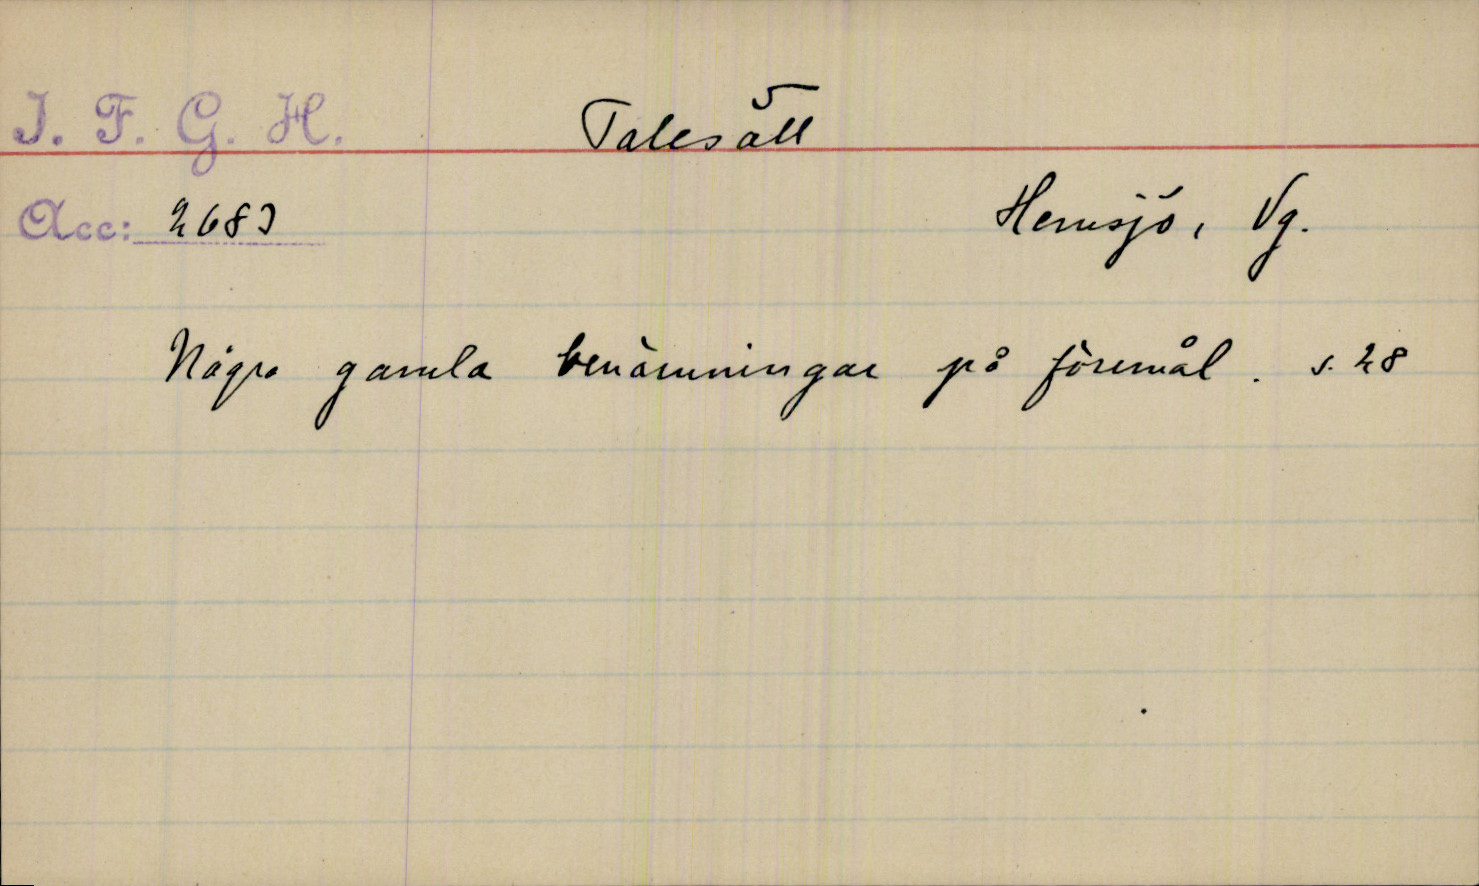 I. F. G. H.
Talesätt
Acc: 2683
Hemsjö, Vg.
Några gamla benämningar på föremål. s. 28